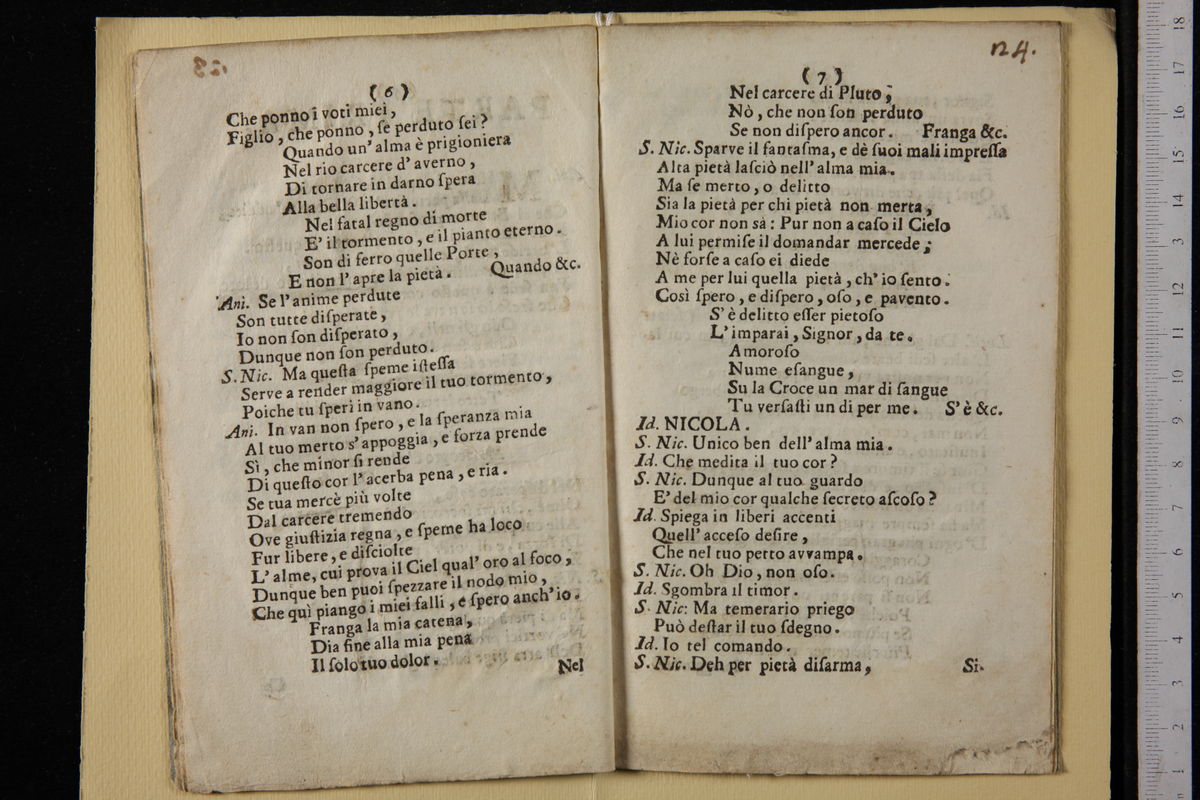 123
(6)
Che ponno i voti miei,
Figlio, che ponno, ſe perduto ſei?
Quando un' alma è prigioniera
Nel rio carcere d' averno,
Di tornare in darno ſpera
Alla bella libertà.
Nel fatal regno di morte
E' il tormento, e il pianto eterno.
Son di ferro quelle Porte,
E non l' apre la pietà. Quando &c.
Ani. Se l' anime perdute
Son tutte diſperate,
Io non ſon diſperato,
Dunque non ſon perduto.
S. Nic. Ma queſta ſpeme iſteſſa
Serve a render maggiore il tuo tormento,
Poiche tu ſperi in vano.
Ani. In van non ſpero, e la ſperanza mia
Al tuo merto s' appoggia, e forza prende
Sì, che minor ſi rende
Di queſto cor l' acerba pena, e ria.
Se tua mercè più volte
Dal carcere tremendo
Ove giuſtizia regna, e ſpeme ha loco
Fur libere, e diſciolte
L' alme, cui prova il Ciel qual' oro al foco,
Dunque ben puoi ſpezzare il nodo mio,
Che quì piango i miei falli, e ſpero anch' io.
Franga la mia catena,
Dia fine alla mia pena
Il ſolo tuo dolor.
Nel
124.
(7)
Nel carcere di Pluto;
Nò, che non ſon perduto
Se non diſpero ancor. Franga &c.
S. Nic. Sparve il fantaſma, e dè ſuoi mali impreſſa
Alta pietà laſciò nell' alma mia.
Ma ſe merto, o delitto
Sia la pietà per chi pietà non merta,
Mio cor non sà: Pur non a caſo il Cielo
A lui permiſe il domandar mercede;
Nè forſe a caſo ei diede
A me per lui quella pietà, ch' io ſento.
Così ſpero, e diſpero, oſo, e pavento.
S' è delitto eſſer pietoſo
L' imparai, Signor, da te.
Amoroſo
Nume eſangue,
Su la Croce un mar di ſangue
Tu verſaſti un di per me. S' è &c.
Id. NICOLA.
S. Nic. Unico ben dell' alma mia.
Id. Che medita il tuo cor?
S. Nic. Dunque al tuo guardo
E' del mio cor qualche ſecreto aſcoſo?
Id. Spiega in liberi accenti
Quell' acceſo deſire,
Che nel tuo petto avvampa.
S. Nic. Oh Dio, non oſo.
Id. Sgombra il timor.
S. Nic: Ma temerario priego
Può deſtar il tuo ſdegno.
Id. Io tel comando.
S. Nic. Deh per pietà diſarma,
Si.